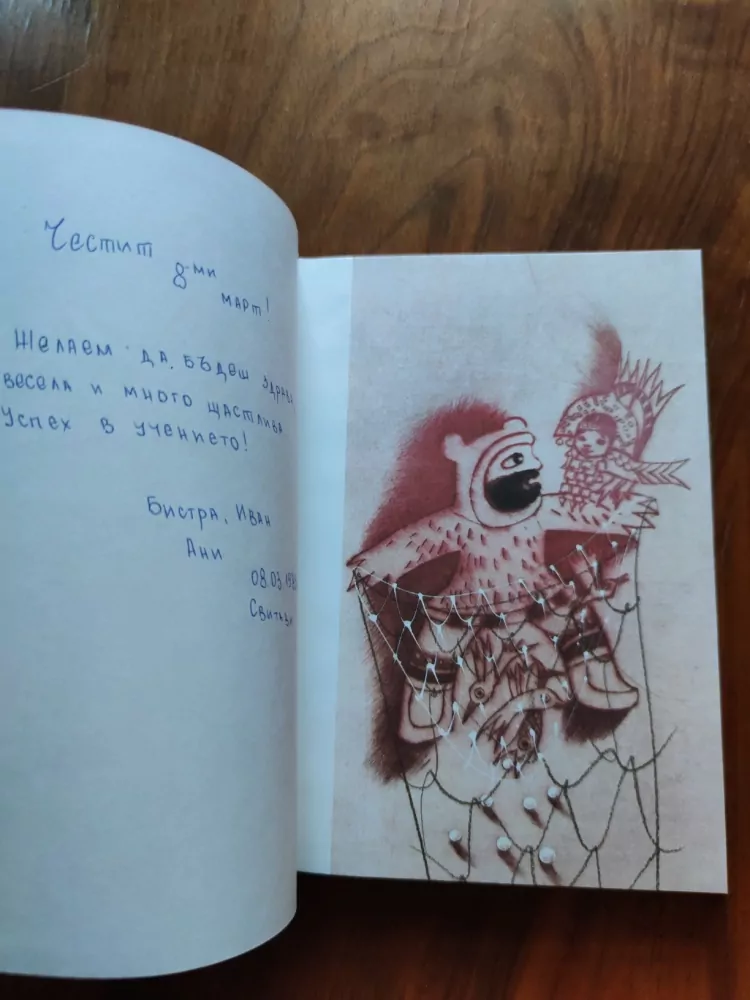 Честит
8-ми
март!
Желаем да бъдеш здрава
весела и много щастлива
Успех в учението!
Бистра, Иван
Ани
08.03.198